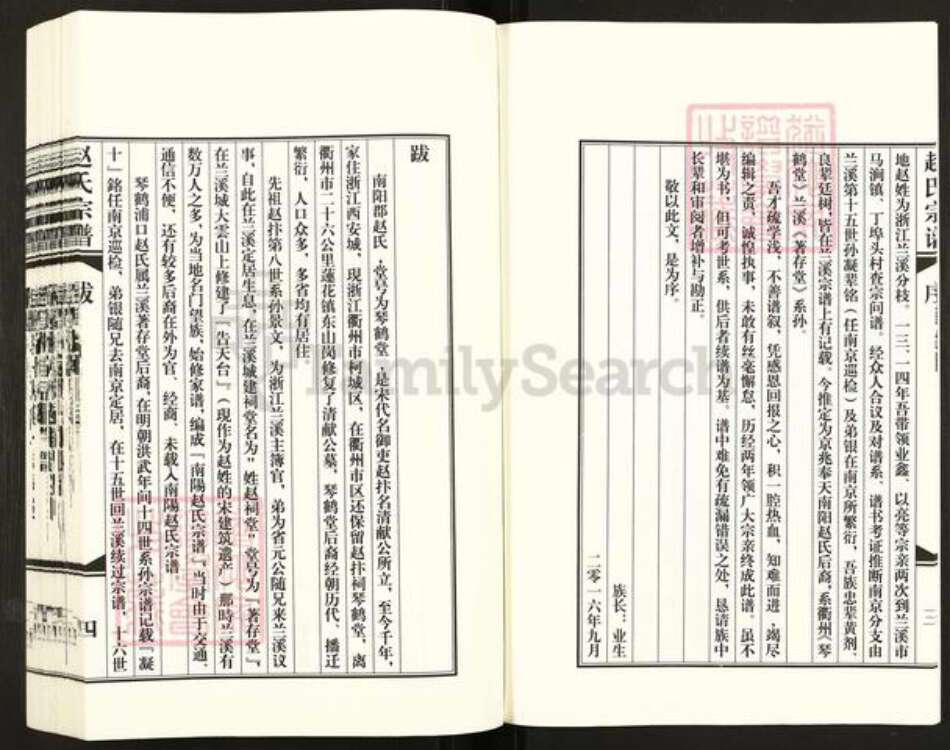 地赵姓为浙江兰溪分枝。一三、一四年吾带领业鑫、以亮等宗亲两次到兰溪市
马涧镇、丁埠头村查宗问谱。经众人合议及对谱系、谱书考证推断南京分支由
兰溪第十五世孙凝辈铭（任南京巡检）及弟银在南京所繁衍，吾族忠辈黄剂、
良辈廷树，皆在兰溪宗谱上有记载。今推定为京兆奉天南阳赵氏后裔，系衢州《琴
鹤堂》兰溪《著存堂》系孙。
吾才疏学浅，不善谱叙，凭感恩回报之心，积一腔热血，知难而进，竭尽
编辑之责，诚惶执事，未敢有丝毫懈怠，历经两年领广大宗亲终成此谱。虽不
堪为书，但可考世系，供后者续谱为基。谱中难免有疏漏错误之处，恳请族中
长辈和审阅者增补与勘正。
敬以此文，是为序。
族长：业生
二零一六年九月
赵氏宗谱
序
跋
南阳郡赵氏，堂号为琴鹤堂，是宋代名御吏赵抃名清献公所立，至今千年，
家住浙江西安城，现浙江衢州市柯城区，在衢州市区还保留赵抃祠琴鹤堂，离
衢州市二十六公里莲花镇东山岗修复了清献公墓，琴鹤堂后裔经朝历代，播迁
繁衍，人口众多，多省均有居住
先祖赵抃第八世系孙景文，为浙江兰溪主簿官，弟为省元公随兄来兰溪议
事，自此在兰溪定居生息，在兰溪城建祠堂名为"姓赵祠堂"堂号为『著存堂』，
在兰溪城大雲山上修建了『告天台』（现作为赵姓的宋建筑遗产）那時兰溪有
数万人之多，为当地名门望族，始修家谱，编成『南陽赵氏宗谱』。当时由于交通、
通信不便，还有较多后裔在外为官、经商，未载入南陽赵氏宗谱
琴鹤浦口赵氏属兰溪著存堂后裔，在明朝洪武年间十四世系孙宗谱记载『凝
十』銘任南京巡检，弟银随兄去南京定居，在十五世回兰溪续过宗谱，十六世
赵氏宗谱
跋
四
FamilySearch